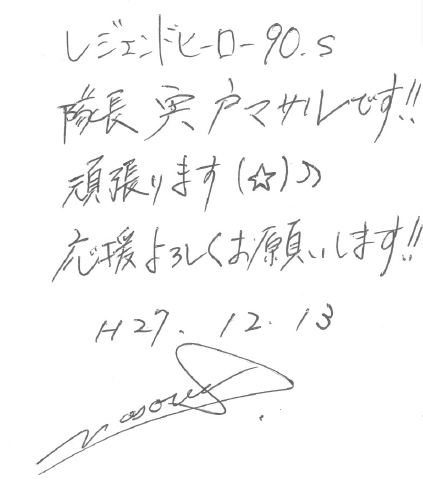 レジェンドヒーロー90.s
隊長 宍戸マサルです!!
頑張ります(☆)♪
応援よろしくお願いします!!
H27. 12. 13